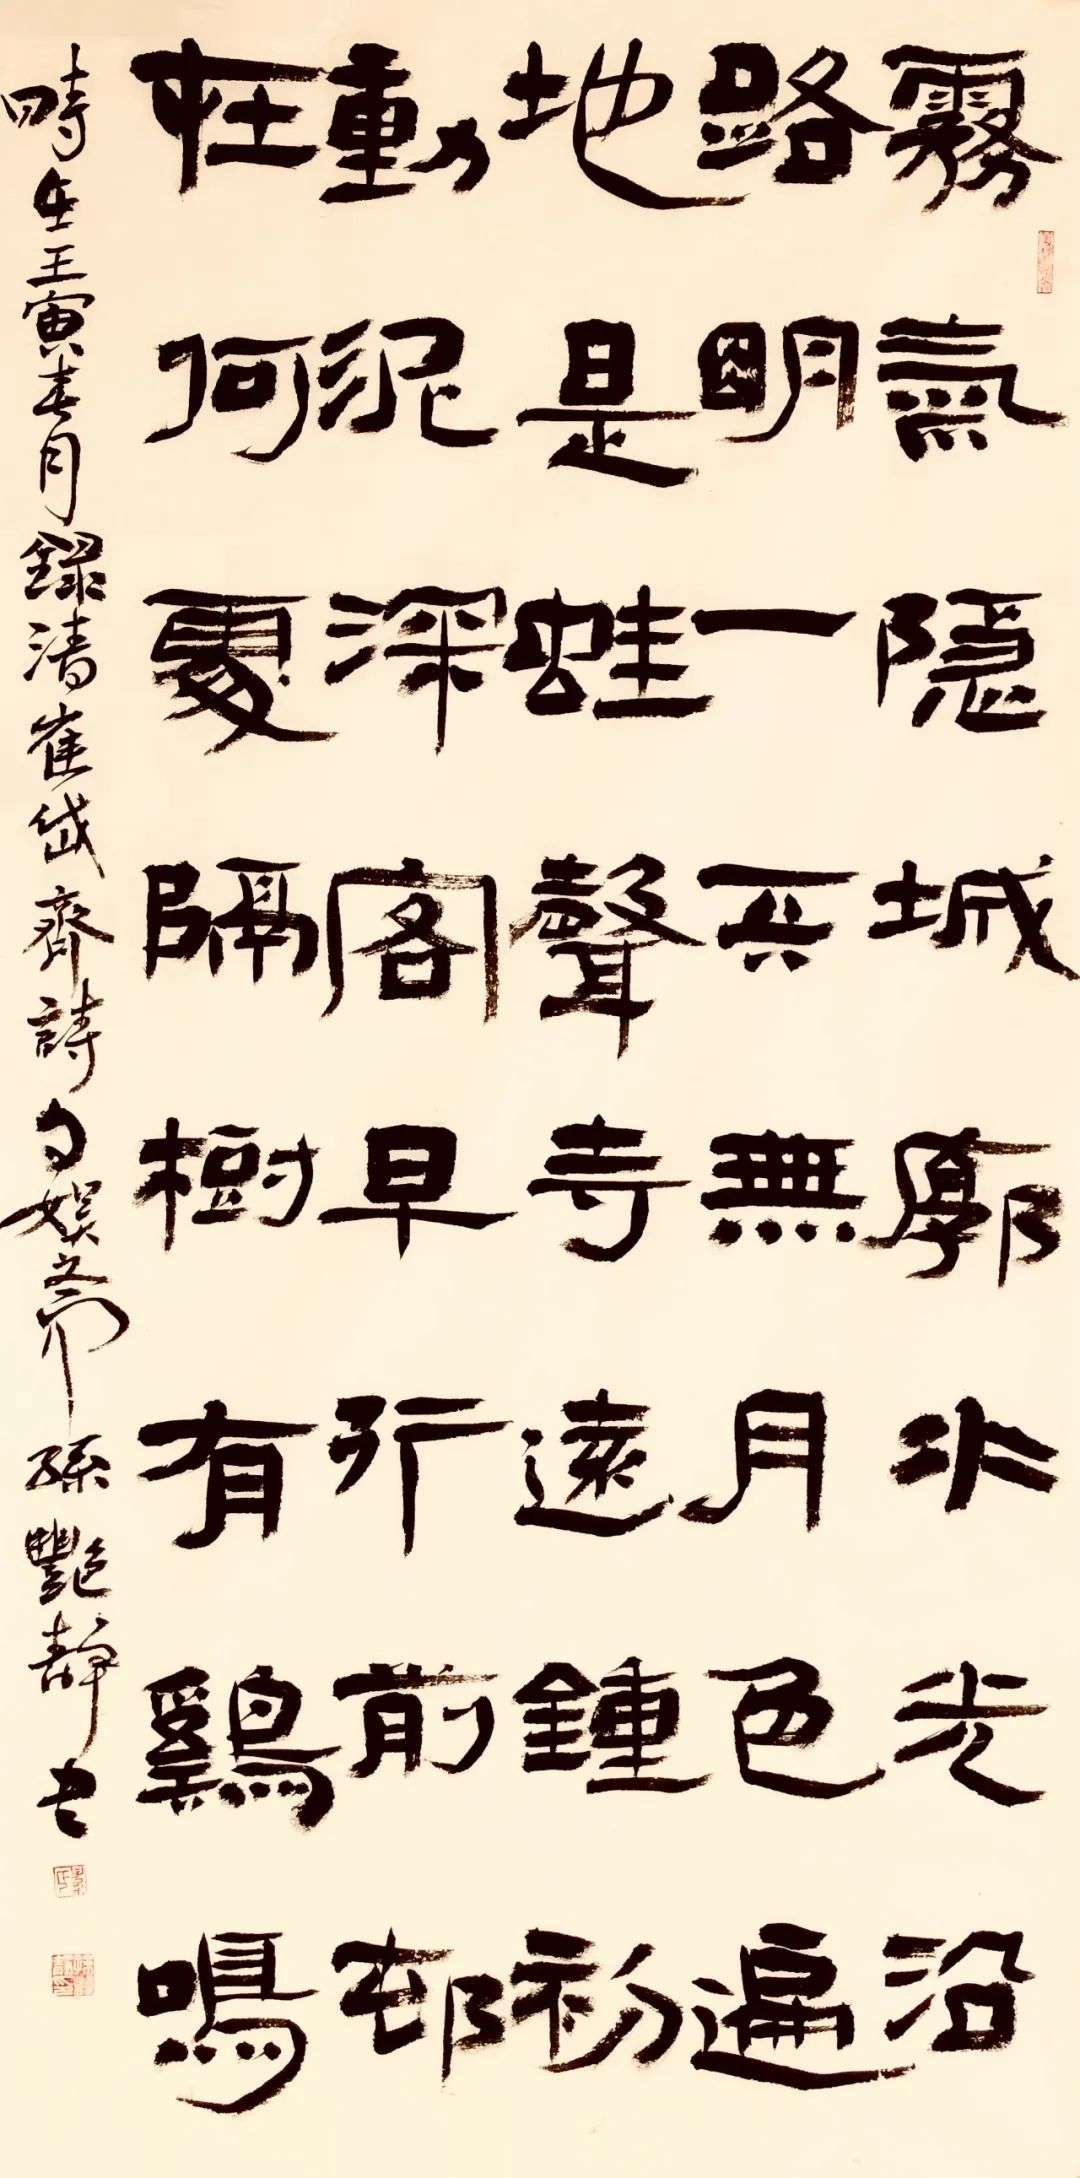 霧氣隱城郭水光沿
路明一天無月色遍
地是蛙聲寺遠鐘初
動泥深客早行前邨
在何處隔樹有鷄鳴
時在壬寅春月錄清崔岱齊詩句娱齋孫艷靜書